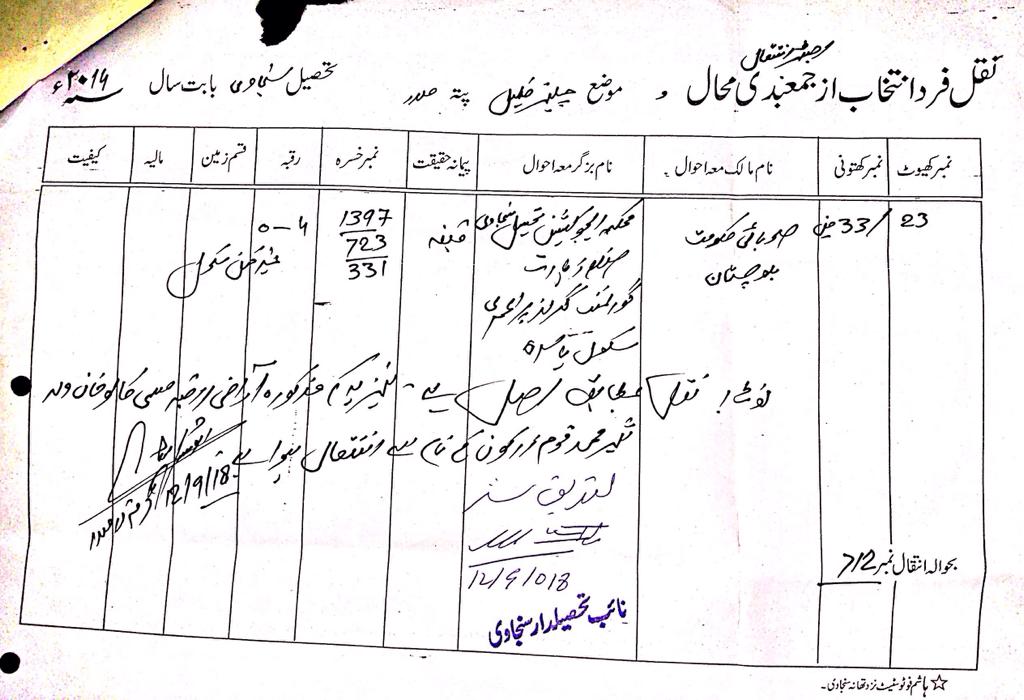 رجسٹر انتقال
نقل فرد انتخاب از جمعبندی محال و موضع خلیل پتہ صدر تحصیل سنجاوی بابت سال ۲۰۱۶ء
نمبر کھیوٹ نمبر کھتونی نام مالک معہ احوال نام بزگر معہ احوال پیمانہ حقیقت نمبر خسرہ رقبہ قسم زمین مالیہ کیفیت
23 33/ صوبائی حکومت محکمہ ایجوکیشن تحصیل سنجاوی قبضہ 1397 ۰-۴
بلوچستان ضلع زیارت 723 غیر ممکن سکول
گورنمنٹ گرلز پرائمری 331
سکول
نوٹ: نقل مطابق اصل ہے۔ نیز یہ کہ مذکورہ آراضی مسمی کالو خان ولد
محمد قوم کے نام سے انتقال ہوا ہے
12/9/18
تصدیق شد
12/9/018
نائب تحصیلدار سنجاوی
بحوالہ انتقال نمبر 712
☆ ہاشم فوٹوسٹیٹ نزد تھانہ سنجاوی۔